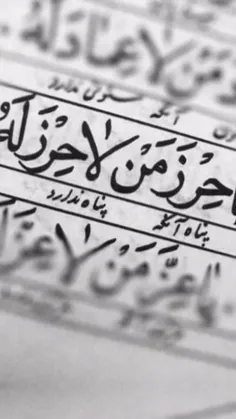 مَنْ لا عِمادَ لَهُ
آنکه ستونی ندارد
حِرْزَ مَنْ لا حِرْزَ لَهُ
پناه آنکه پناه ندارد
یا عِزَّ مَنْ لا